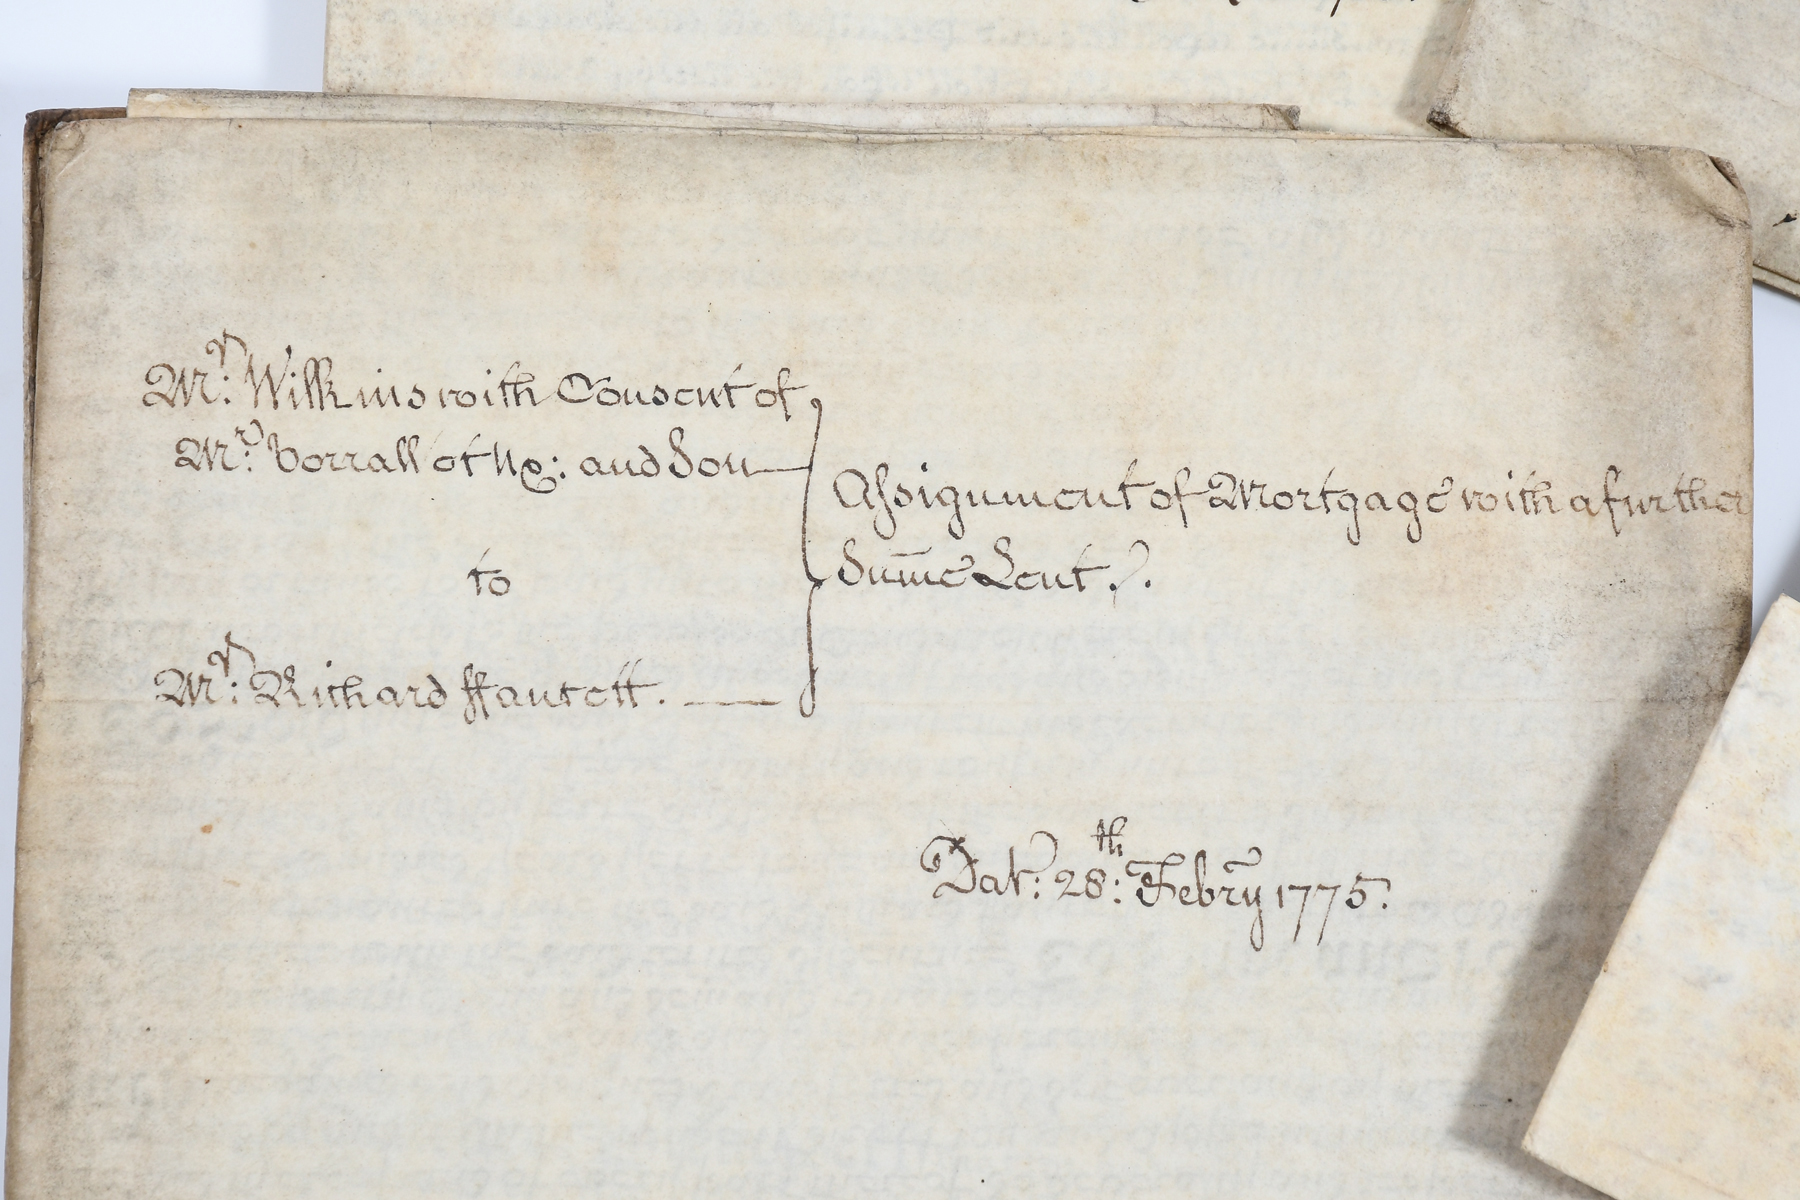 Mr: Wilkins with Consent of
Mr: Vorrall et Ux: and Son
to
Mr: Richard ffancett.
Assignment of Mortgage with a further
Sum̄e Lent.
Dat: 28th: Febry 1775.